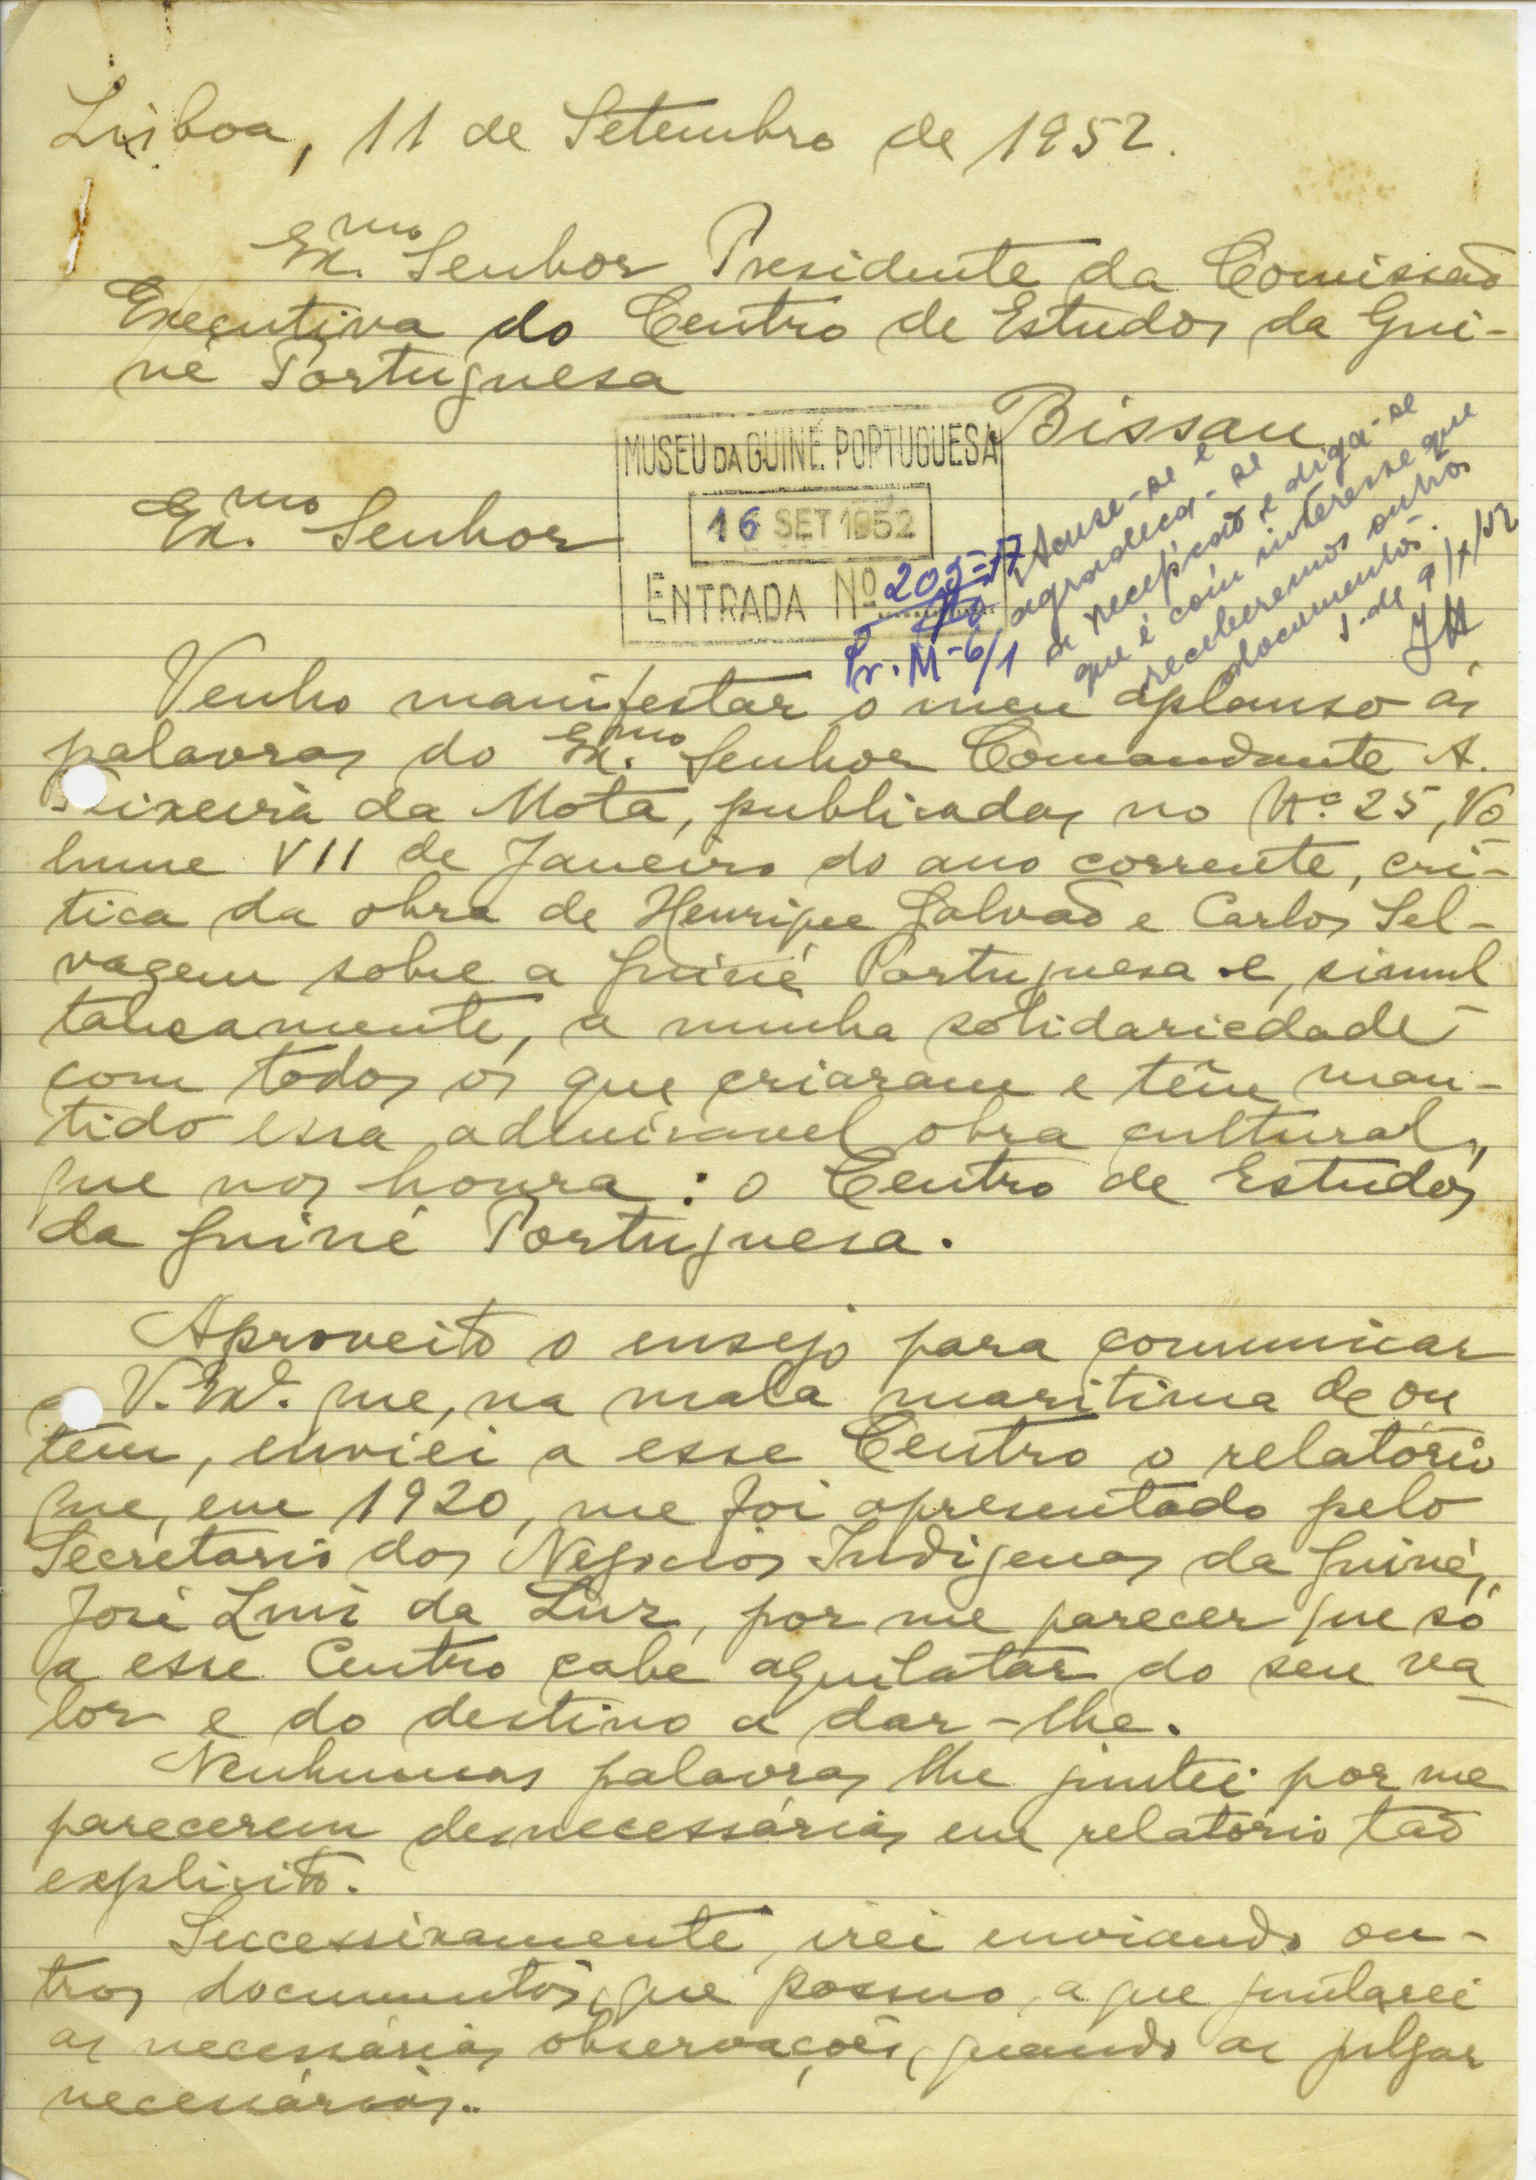 Lisboa, 11 de Setembro de 1952.
Ex.mo Senhor Presidente da Comissão
Executiva do Centro de Estudos da Gui-
né Portuguesa
Bissau
MUSEU DA GUINÉ PORTUGUESA
16 SET 1952
ENTRADA Nº 205-17
Pr. M-6/1
Acuse-se e
agradeça-se
a recepção e diga-se
que é com interesse que
receberemos outros
documentos.
Ex.mo Senhor
Venho manifestar o meu aplauso ás
palavras do Ex.mo Senhor Comandante A.
Teixeira da Mota, publicadas no Nº 25, Vo
lume VII de Janeiro do ano corrente, cri-
tica da obra de Henrique Galvão e Carlos Sel-
vagem sobre a Guiné Portuguesa e, simul
taneamente, a minha solidariedade
com todos os que criaram e têm man-
tido essa admiravel obra cultural,
que nos honra: o Centro de Estudos
da Guiné Portuguesa.
Aproveito o ensejo para comunicar
a V. Ex. que, na mala maritima de on
tem, enviei a esse Centro o relatório
que, em 1920, me foi apresentado pelo
Secretario dos Negocios Indigenas da Guiné,
José Luis da Luz, por me parecer que só
a esse Centro cabe aquilatar do seu va
lor e do destino a dar-lhe.
Nenhumas palavras lhe juntei por me
parecerem desnecessárias em relatório tão
explicito.
Sucessivamente, irei enviando ou-
tros documentos, que possuo, a que juntarei
as necessárias observações, quando as julgar
necessárias.